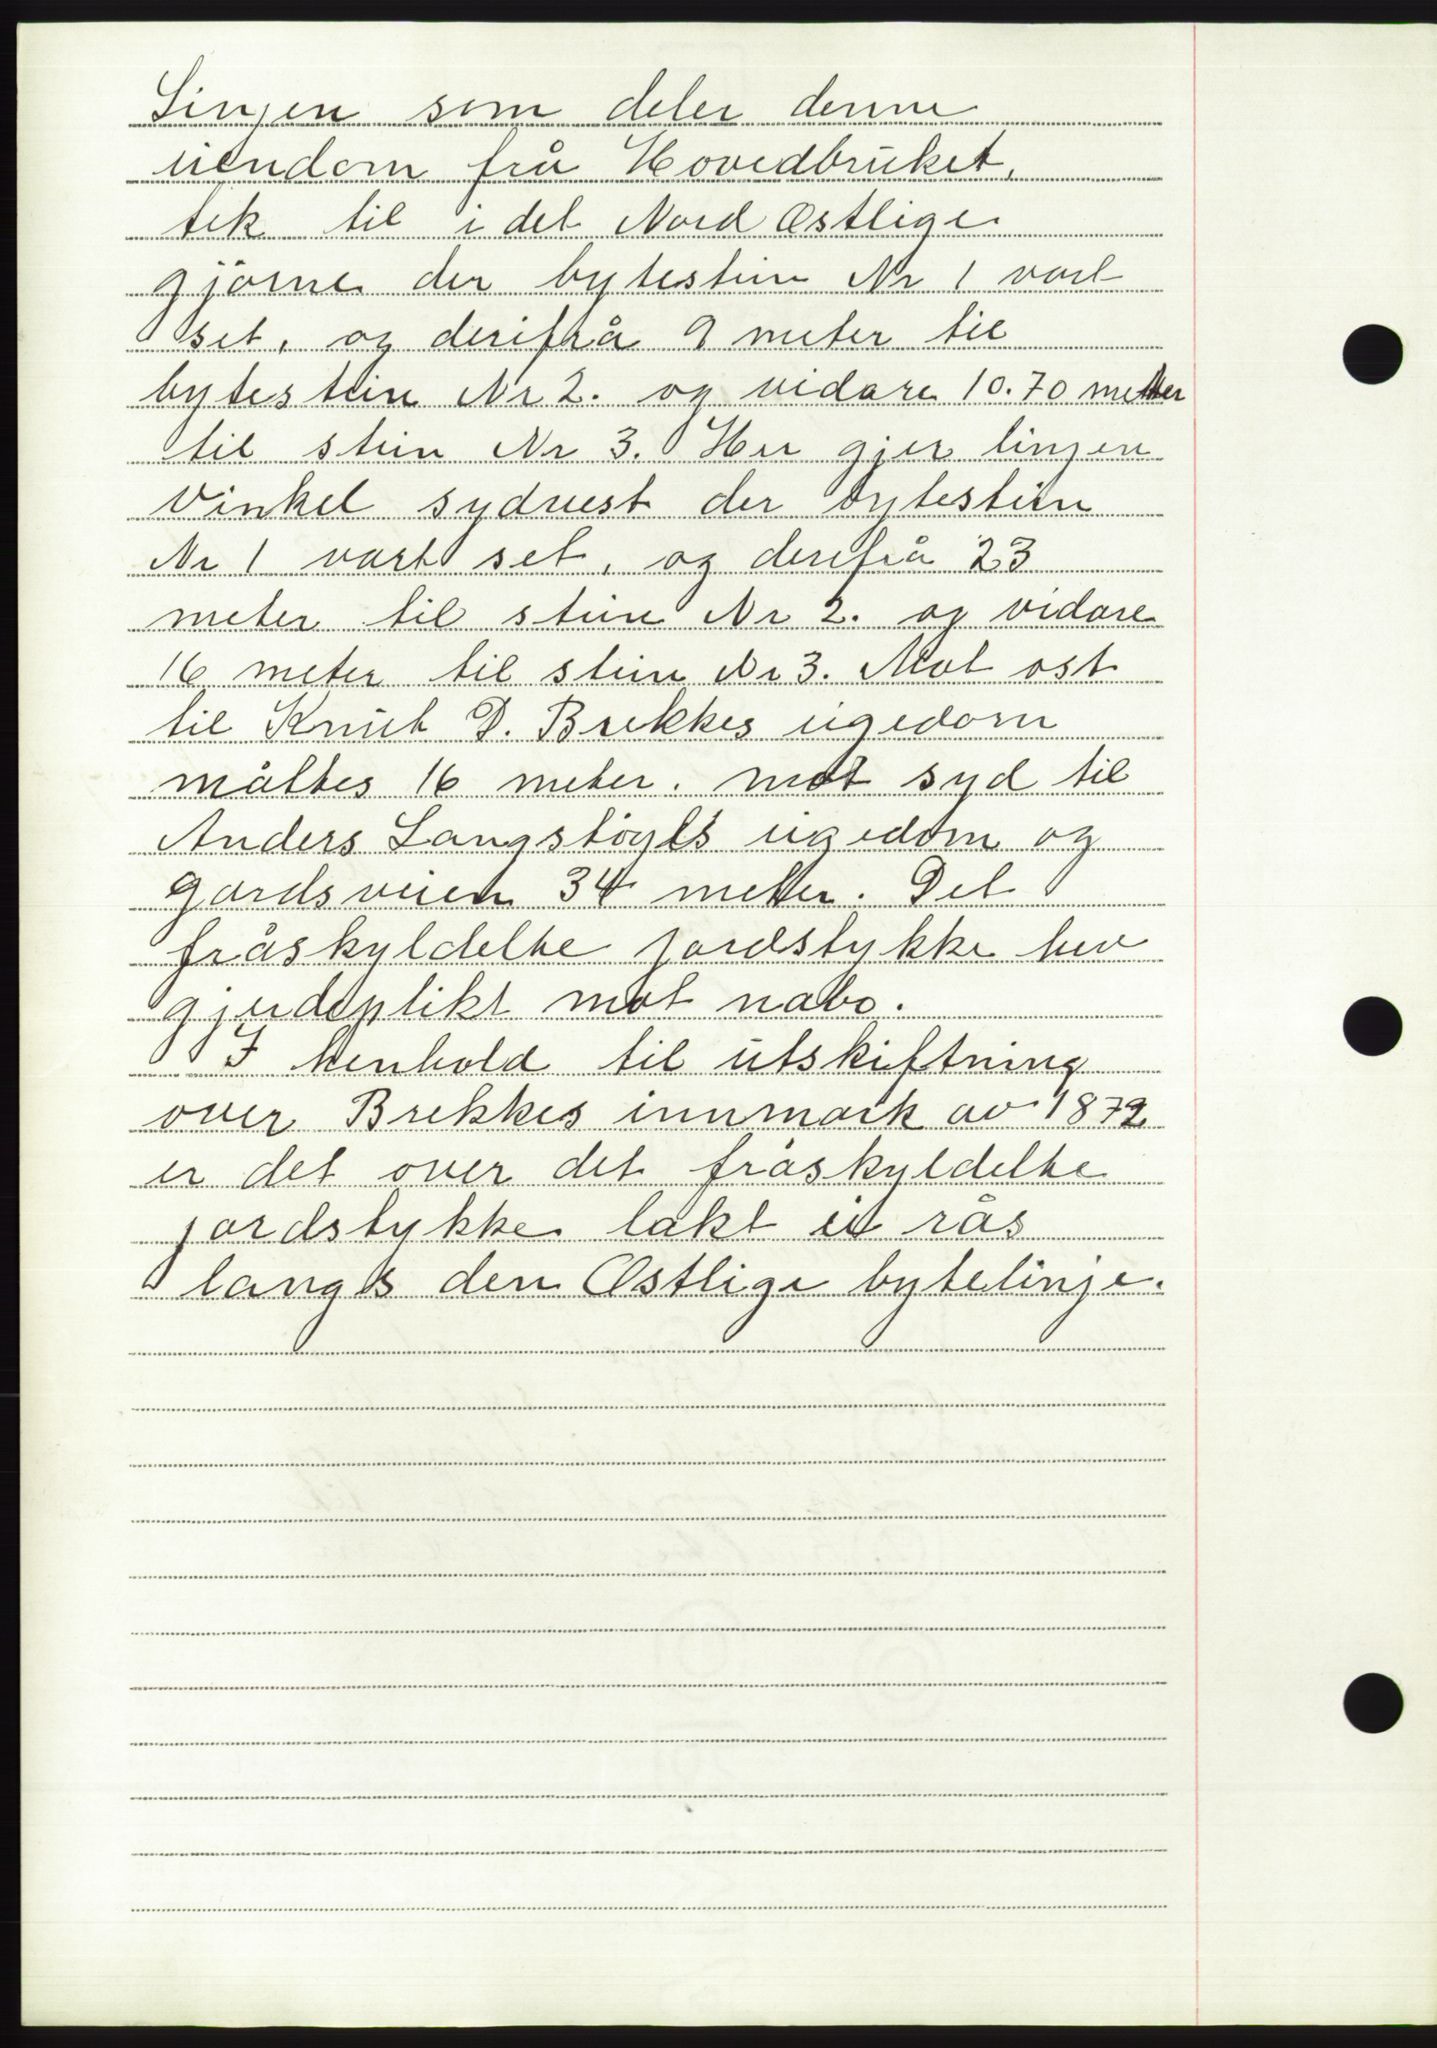 Linjen som deler denne
eiendom frå Hovedbruket,
tek til i det Nord Østlige
hjørne der bytestein Nr 1 vart
set, og derifrå 9 meter til
bytestein Nr 2. og vidare 10.70 meter
til stein Nr 3. Her gjer linjen
Vinkel sydvest der bytestein
Nr 1 vart set, og derifrå 23
meter til stein Nr 2. og vidare
16 meter til stein Nr 3. Mot ost
til Knut D. Brekkes eigedom
måltes 16 meter. mot syd til
Anders Langstøyls eigedom og
gardsveien 34 meter. Det
fråskyldelte jordstykke hev
gjerdeplikt mot nabo.
I henhold til utskiftning
over Brekkes innmark av 1872
er det over det fråskyldelte
jordstykke lakt ei rås
langs den Østlige bytelinje.